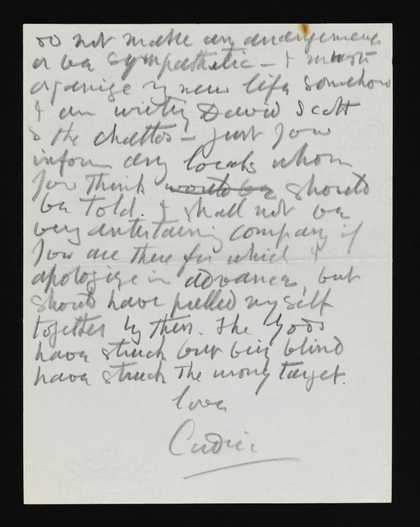 do not make any arrangements
or be sympathetic – I must
organize my new life somehow
I am writing David Scott
& the Chattos – just you
inform any locals whom
you think would be should
be told. I shall not be
very entertaining company if
you are there for which I
apologize in advance, but
should have pulled myself
together by then. The Gods
have struck but being blind
have struck the wrong target.
love